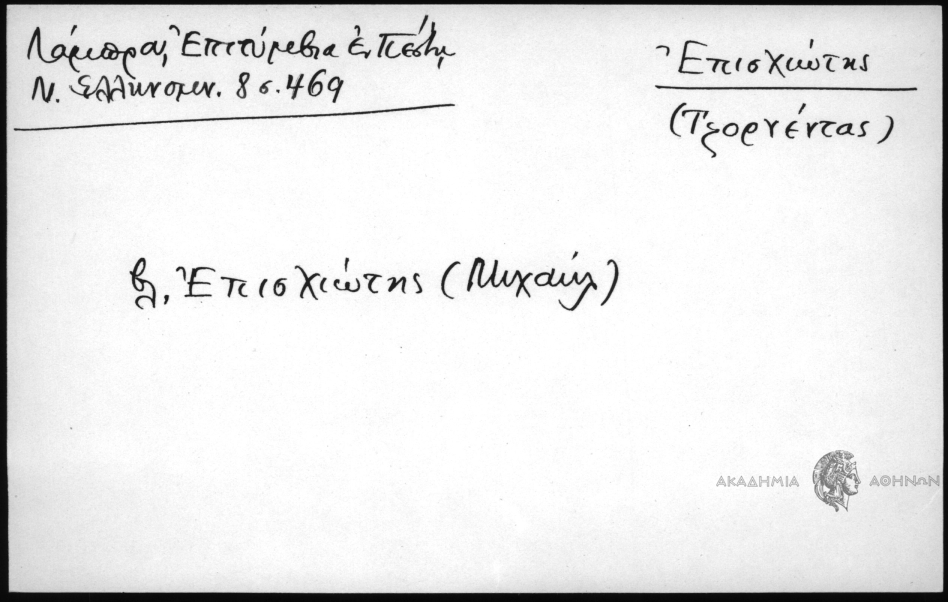 Λάμπρου, Ἐπιτύμβια ἐν Πέστῃ
Ν. Ἑλληνομν. 8 σ. 469
Ἐπισχιώτης
(Τζορνέντας)
βλ. Ἐπισχιώτης (Μιχαήλ)
ΑΚΑΔΗΜΙΑ ΑΘΗΝΩΝ